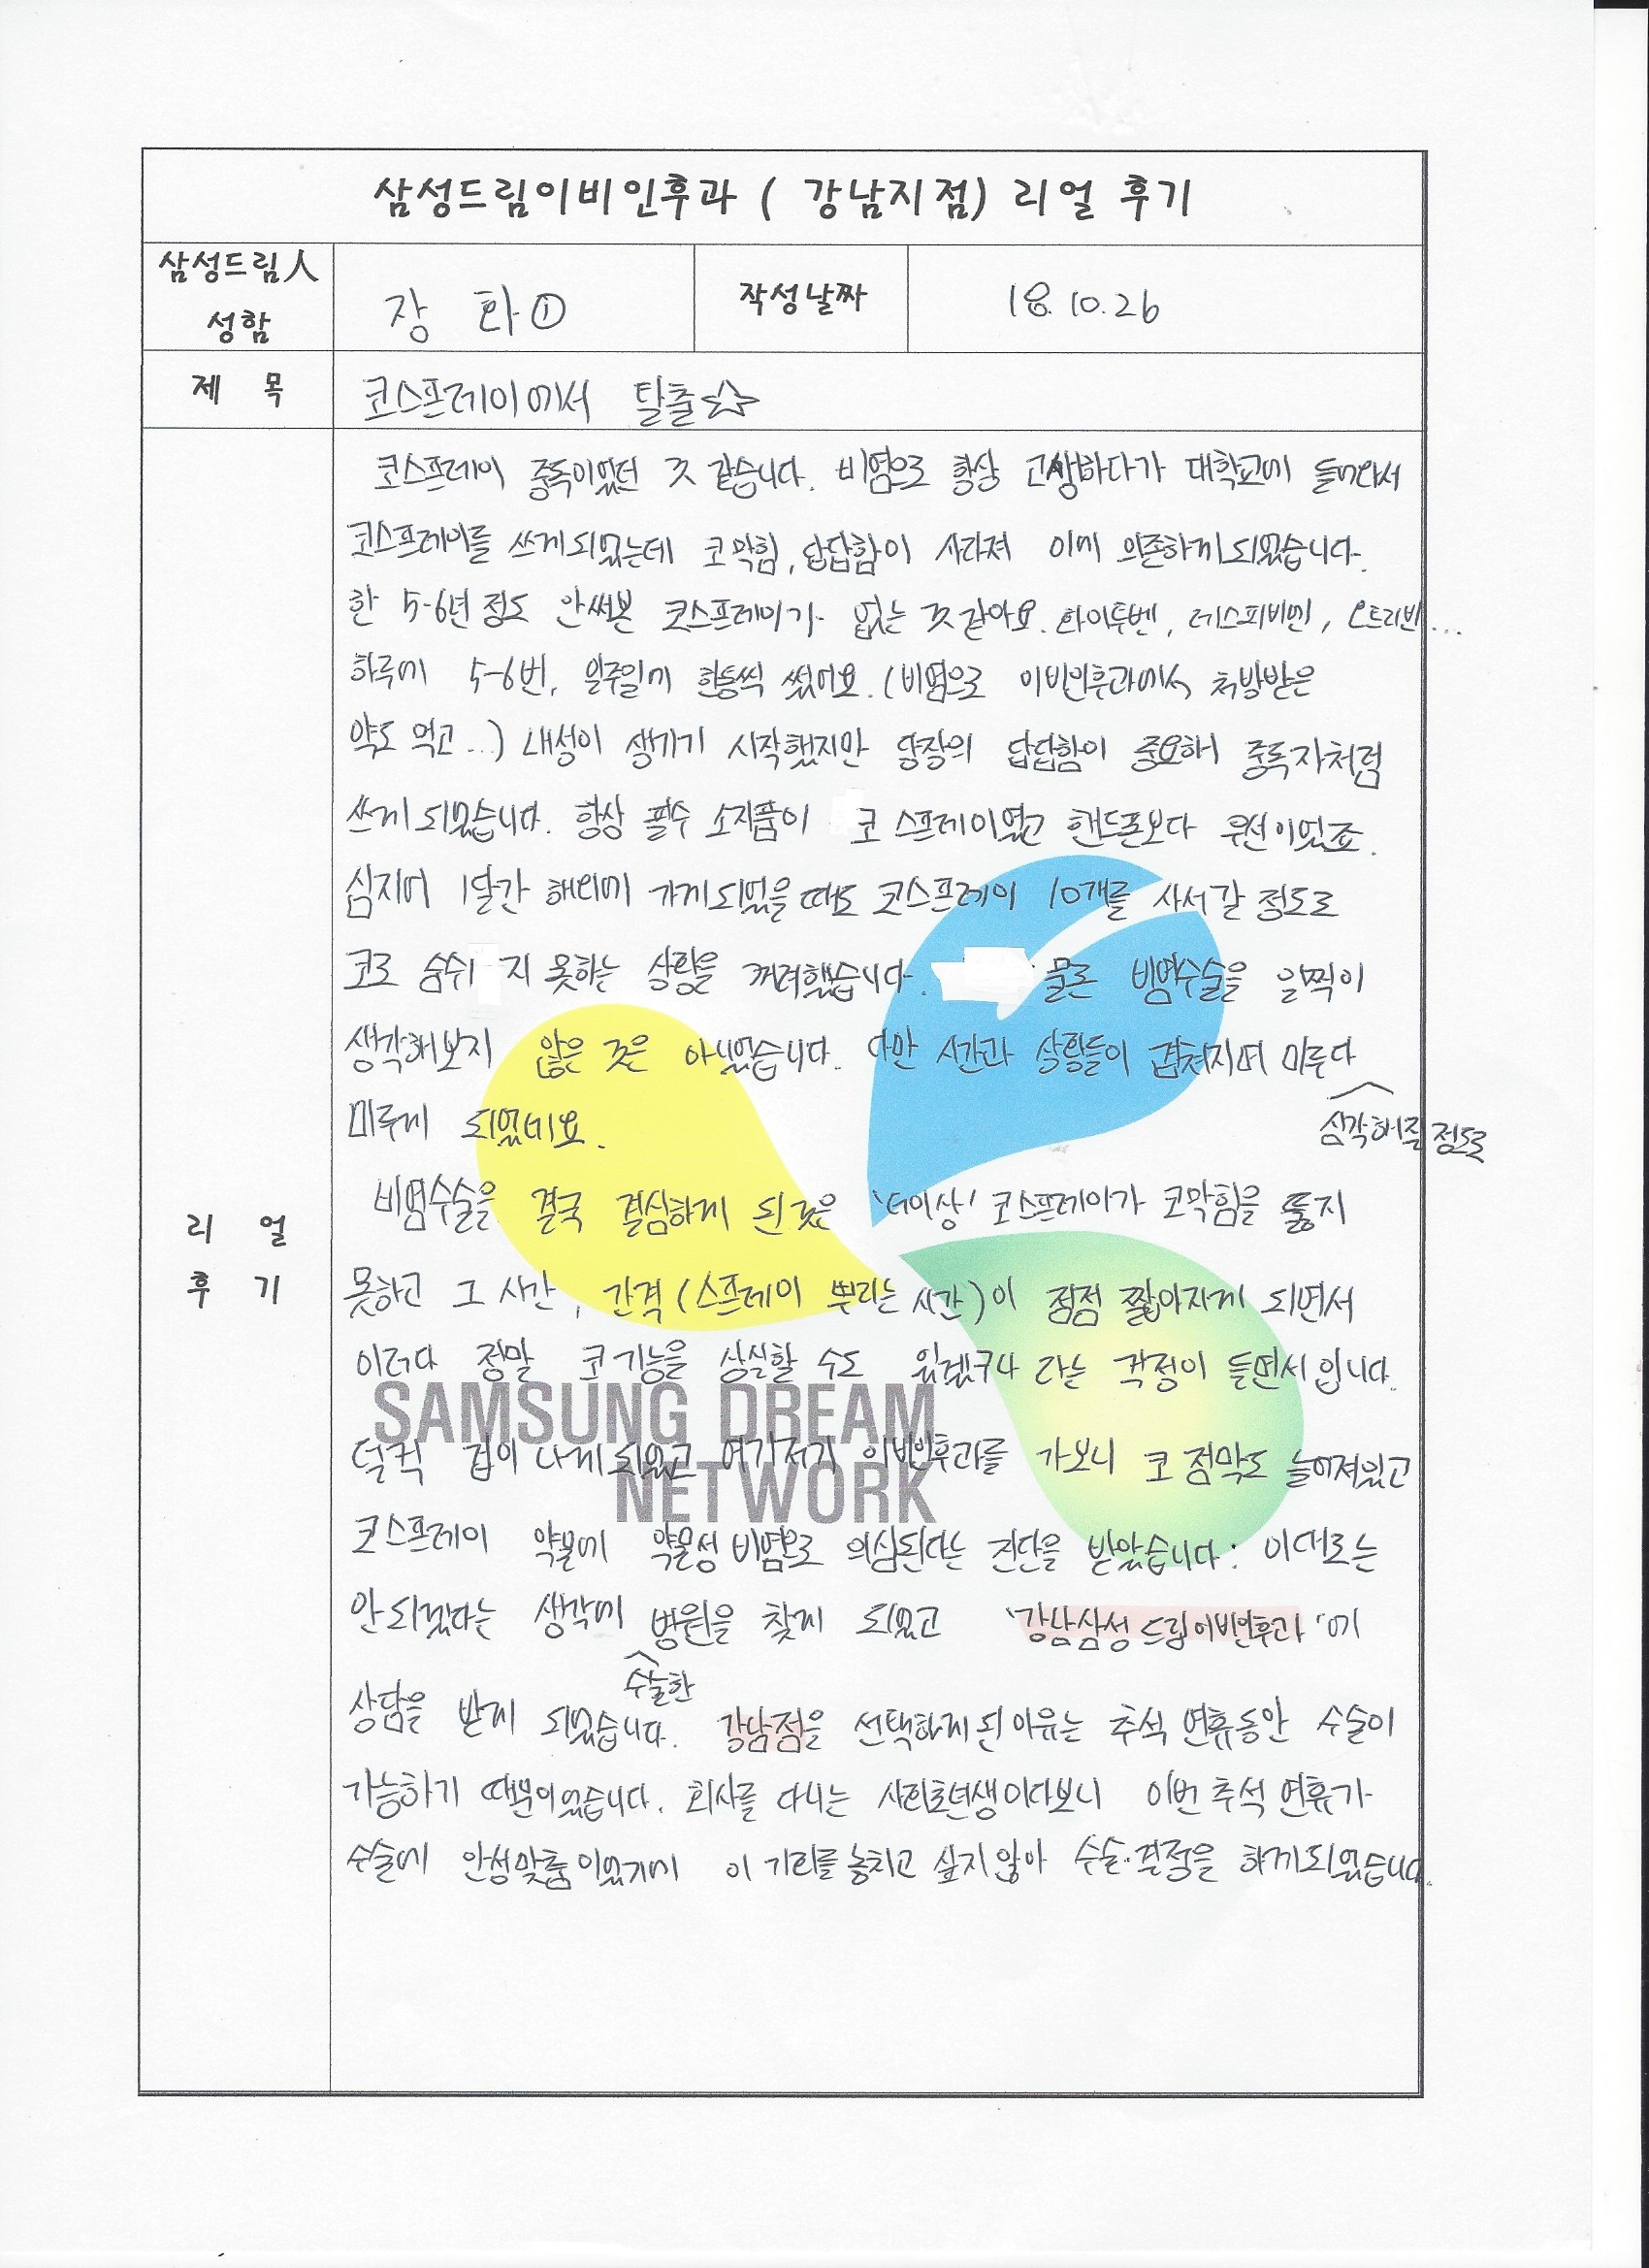 삼성드림이비인후과 ( 강남지점) 리얼 후기
삼성드림人 성함
장 화①
작성날짜
18. 10. 26
제 목
코스프레이에서 탈출☆
리 얼
후 기
코스프레이 중독이었던 것 같습니다. 비염으로 항상 고생하다가 대학교에 들어와서
코스프레이를 쓰게되었는데 코막힘, 답답함이 사라져 이에 의존하게되었습니다.
한 5-6년 정도 안써본 코스프레이가 없는 것 같아요. 화이투벤, 레스피비엔, 오트리빈...
하루에 5-6번, 일주일에 한통씩 썼어요. (비염으로 이비인후과에서 처방받은
약도 먹고...) 내성이 생기기 시작했지만 당장의 답답함이 중요해서 중독자처럼
쓰게 되었습니다. 항상 필수 소지품이 코 스프레이였고 핸드폰보다 우선이었죠.
심지어 1달간 해외에 가게되었을 때도 코스프레이 10개를 사서 갈 정도로
코로 숨쉬지 못하는 상황을 꺼려했습니다. 물론 비염수술을 일찍이
생각해보지 않은 것은 아니었습니다. 다만 시간과 상황들이 겹쳐지며 미루다
미루게 되었네요.
심각해질 정도로
비염수술을 결국 결심하게 된 것은 '더이상' 코스프레이가 코막힘을 뚫지
못하고 그 시간, 간격 (스프레이 뿌리는 시간)이 점점 짧아지게 되면서
이러다 정말 코 기능을 상실할 수도 있겠구나 라는 걱정이 들면서입니다.
덜컥 겁이 나게 되었고 여기저기 이비인후과를 가보니 코 점막도 늘어져있고
코스프레이 약물에 약물성 비염으로 의심된다는 진단을 받았습니다. 이대로는
안되겠다는 생각에 병원을 찾게 되었고 '강남삼성드림이비인후과'에
수술한
상담을 받게 되었습니다. 강남점을 선택하게 된 이유는 추석 연휴동안 수술이
가능하기 때문이었습니다. 회사를 다니는 사회초년생이다보니 이번 추석 연휴가
수술에 안성맞춤이었기에 이 기회를 놓치고 싶지않아 수술 결정을 하게되었습니다.
SAMSUNG DREAM
NETWORK